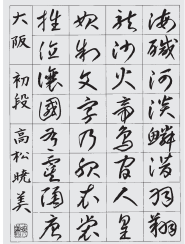 海鹹河淡鱗潛羽翔
龍師火帝鳥官人皇
始制文字乃服衣裳
推位讓國有虞陶唐
大阪 初段 高松暁美